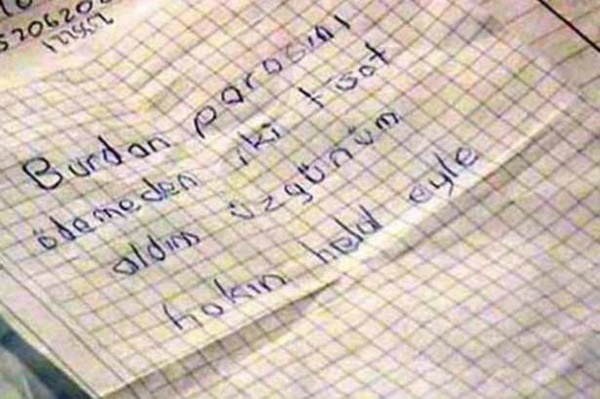 520620
Burdan parasını
ödemeden iki tişöt
aldım üzgünüm
hakın helal eyle